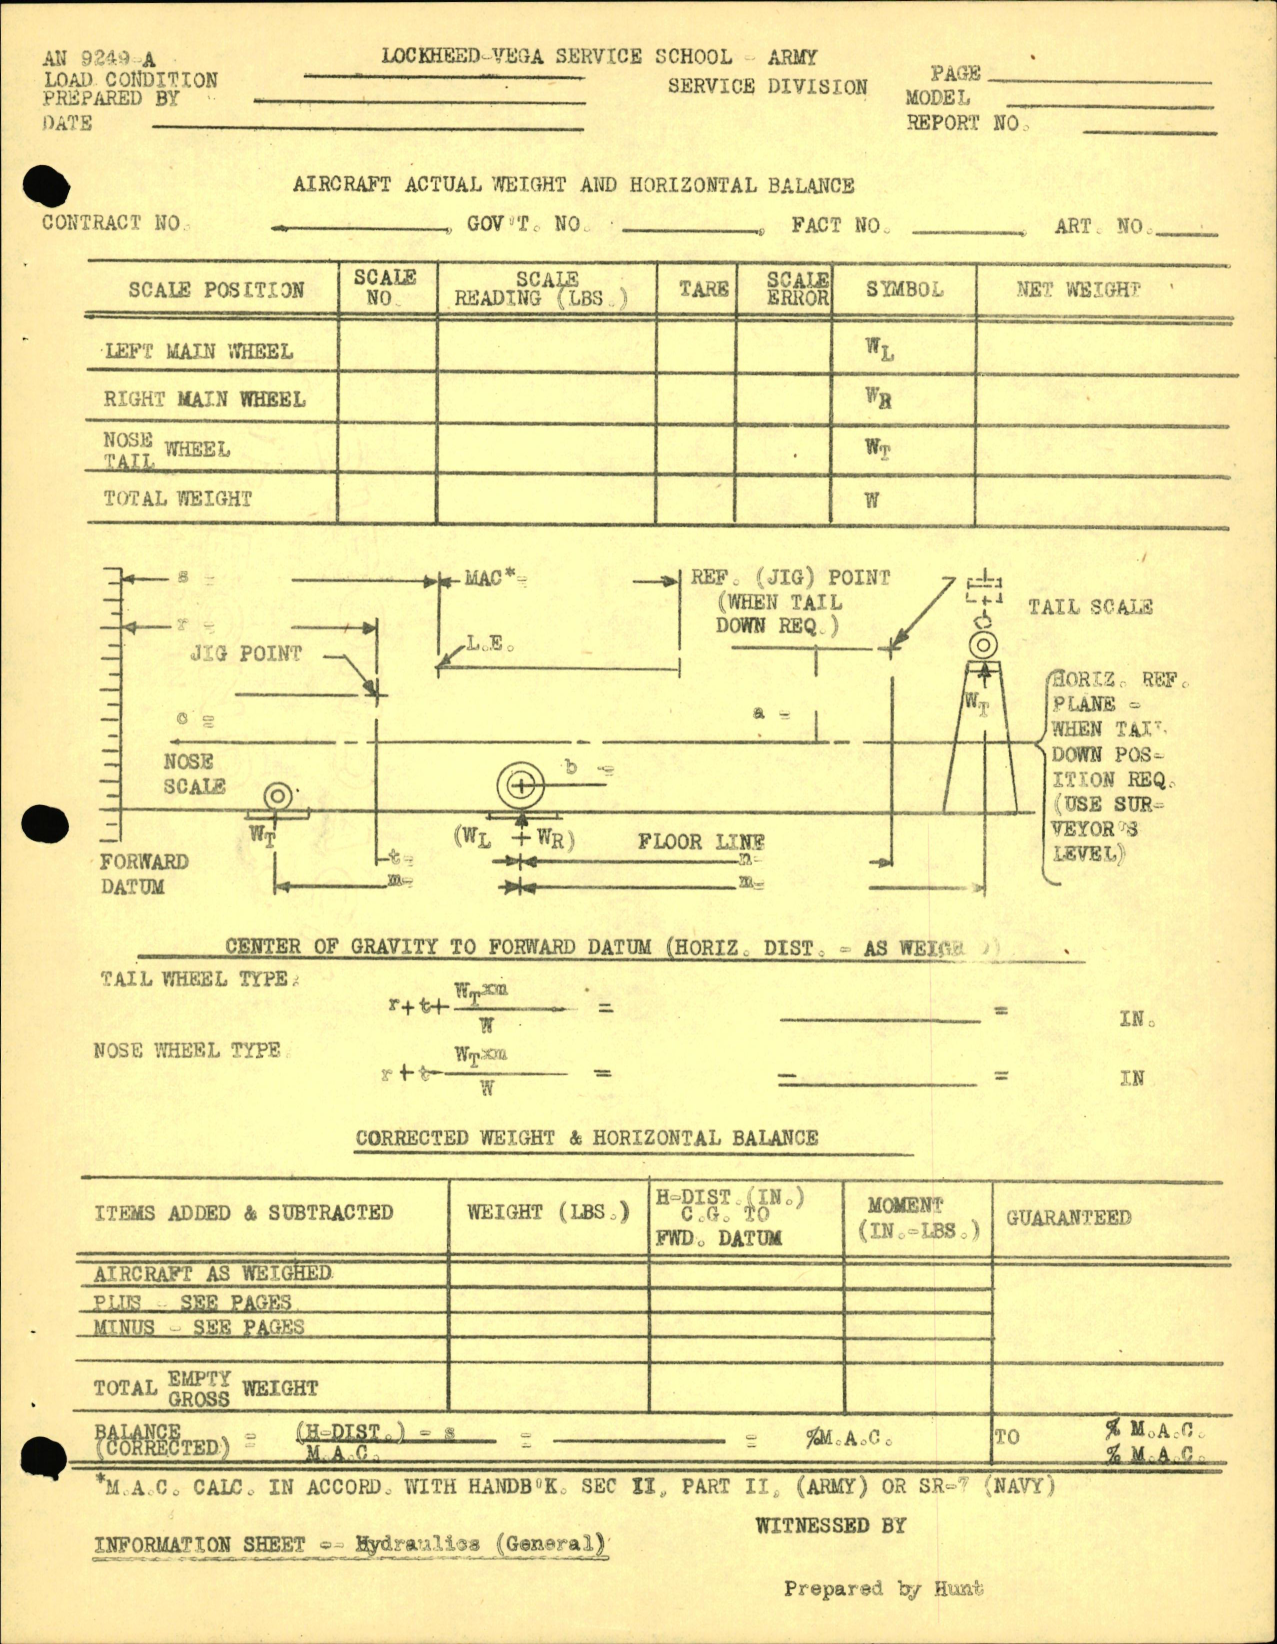 AN 9249-A
LOCKHEED-VEGA SERVICE SCHOOL - ARMY
LOAD CONDITION
SERVICE DIVISION
PAGE
PREPARED BY
MODEL
DATE
REPORT NO.
AIRCRAFT ACTUAL WEIGHT AND HORIZONTAL BALANCE
CONTRACT NO. , GOV'T. NO. , FACT NO. , ART. NO.
SCALE POSITION
SCALE
NO.
SCALE
READING (LBS.)
TARE
SCALE
ERROR
SYMBOL
NET WEIGHT
LEFT MAIN WHEEL WL
RIGHT MAIN WHEEL WR
NOSE
TAIL WHEEL WT
TOTAL WEIGHT W
s =
MAC*=
REF. (JIG) POINT
(WHEN TAIL
DOWN REQ.)
TAIL SCALE
r =
JIG POINT
L.E.
c =
a =
WT
HORIZ. REF.
PLANE -
WHEN TAIL
DOWN POS-
ITION REQ.
(USE SUR-
VEYOR'S
LEVEL)
NOSE
SCALE
b =
WT
(WL + WR)
FLOOR LINE
FORWARD
DATUM
t=
n=
m=
m=
CENTER OF GRAVITY TO FORWARD DATUM (HORIZ. DIST. - AS WEIGH )
TAIL WHEEL TYPE:
r+t+ WTxm
W
= = IN.
NOSE WHEEL TYPE
r+t- WTxm
W
= - = IN
CORRECTED WEIGHT & HORIZONTAL BALANCE
ITEMS ADDED & SUBTRACTED
WEIGHT (LBS.)
H-DIST.(IN.)
C.G. TO
FWD. DATUM
MOMENT
(IN.-LBS.)
GUARANTEED
AIRCRAFT AS WEIGHED
PLUS - SEE PAGES
MINUS - SEE PAGES
TOTAL EMPTY
GROSS WEIGHT
BALANCE
(CORRECTED)
= (H-DIST.) - s
M.A.C.
= = %M.A.C.
TO
% M.A.C.
% M.A.C.
*M.A.C. CALC. IN ACCORD. WITH HANDB'K. SEC II, PART II, (ARMY) OR SR-7 (NAVY)
WITNESSED BY
INFORMATION SHEET -- Hydraulics (General)
Prepared by Hunt